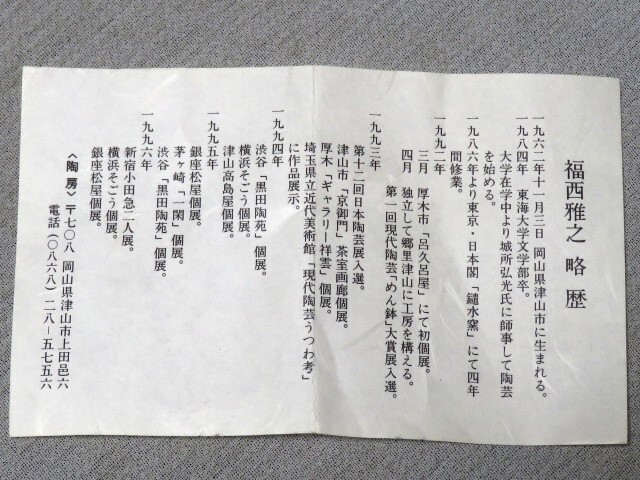 福西雅之 略歴
一九六二年十一月三日 岡山県津山市に生まれる。
一九八四年 東海大学文学部卒。
大学在学中より城所弘光氏に師事して陶芸
を始める。
一九八六年より東京・日本閣「鑓水窯」にて四年
間修業。
一九九二年
三月 厚木市「呂久呂屋」にて初個展。
四月 独立して郷里津山に工房を構える。
第一回現代陶芸「めん鉢」大賞展入選。
一九九三年
第十二回日本陶芸展入選。
津山市「京御門」茶室画廊個展。
厚木「ギャラリー祥雲」個展。
埼玉県立近代美術館「現代陶芸うつわ考」
に作品展示。
一九九四年
渋谷「黒田陶苑」個展。
横浜そごう個展。
津山高島屋個展。
一九九五年
銀座松屋個展。
茅ヶ崎「一閑」個展。
渋谷「黒田陶苑」個展。
一九九六年
新宿小田急二人展。
横浜そごう個展。
銀座松屋個展。
〈陶房〉〒七〇八 岡山県津山市上田邑六
電話(〇八六八)二八ー五七五六